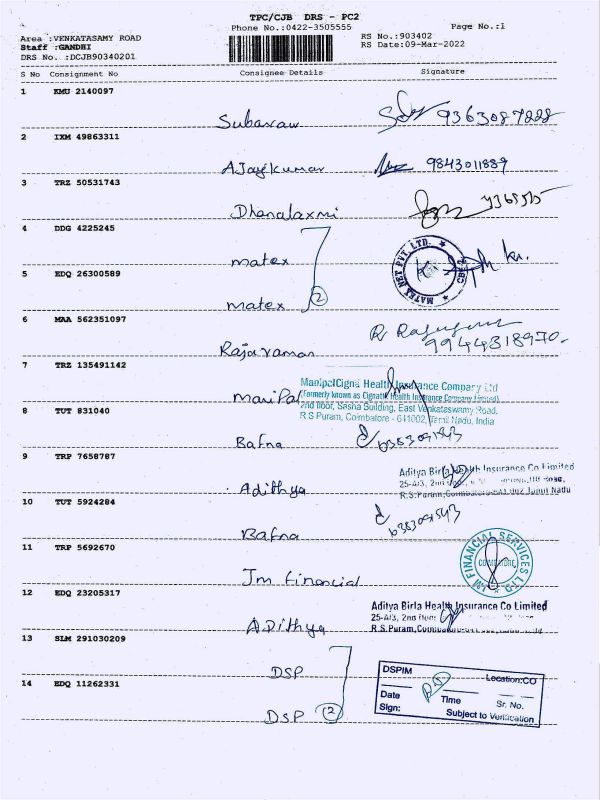 TPC/CJB DRS - PC2
Phone No.:0422-3505555
Page No.:1
Area :VENKATASAMY ROAD
RS No.:903402
Staff :GANDHI
RS Date:09-Mar-2022
DRS No. :DCJB90340201
S No Consignment No Consignee Details Signature
1 KMU 2140097
9363087888
2 IXM 49863311
AJaykumar 9843011889
3 TRZ 50531743
Dhanalaxmi
4 DDG 4225245
matex
MATEX NET PVT. LTD.
5 EDQ 26300589
matex 2
6 MAA 562351097
Rajaraman 9944318970
7 TRZ 135491142
ManipalCigna Health Insurance Company Ltd
(Formerly known as CignaTTK Health Insurance Company Limited)
2nd floor, Sasha Building, East Venkataswamy Road,
R S Puram, Coimbatore - 641002, Tamil Nadu, India
ManiPal
8 TUT 831040
Bafna
9 TRP 7658787
Aditya Birla Health Insurance Co Limited
25-4/3, 2nd
R.S.Puram, Tamil Nadu
Adithya
10 TUT 5924284
Bafna
11 TRP 5692670
JM FINANCIAL SERVICES LTD
COIMBATORE
Jm financial
12 EDQ 23205317
Aditya Birla Health Insurance Co Limited
25-4/3, 2nd floor
R.S.Puram,
Adithya
13 SLM 291030209
DSP
14 EDQ 11262331
DSP 2
DSPIM
Location:CO
Date Time Sr. No.
Sign: Subject to Verification